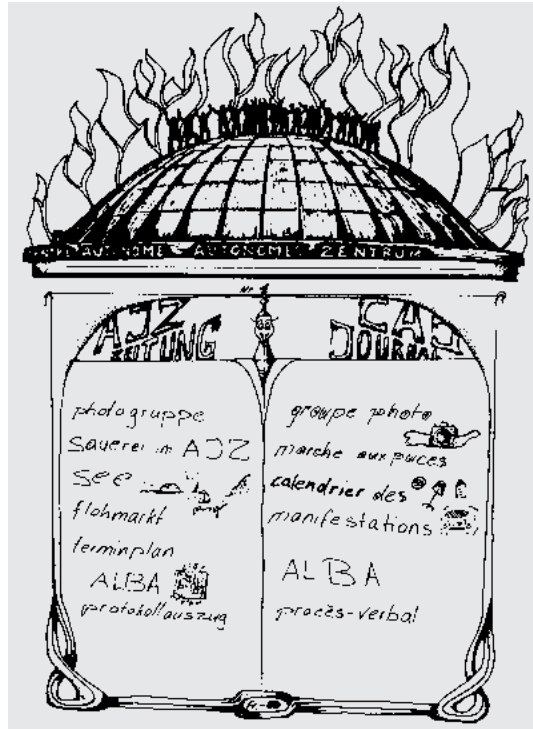 AUTONOME AUTONOMES ZENTRUM
AJZ
ZEITUNG
CAJ
JOURNAL
photogruppe
Sauerei im AJZ
See
flohmarkt
terminplan
ALBA
protokollauszug
groupe photo
marche aux puces
calendrier des
manifestations
ALBA
procès-verbal